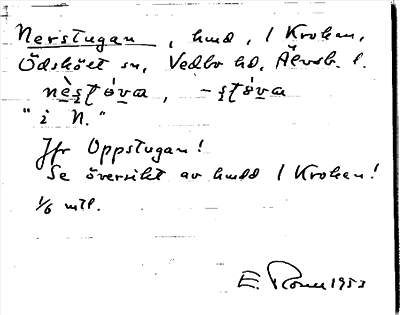 Nerstugan, hmd, / Krokan,
Ödskölt sn, Vedbo hd, Älvsb. l.
nè̱s̱t̮óva, -s̱t̮óva
"i N."
Jfr Oppstugan!
Se översikt av hmdd / Krokan!
1/6 mtl.
E. 1953